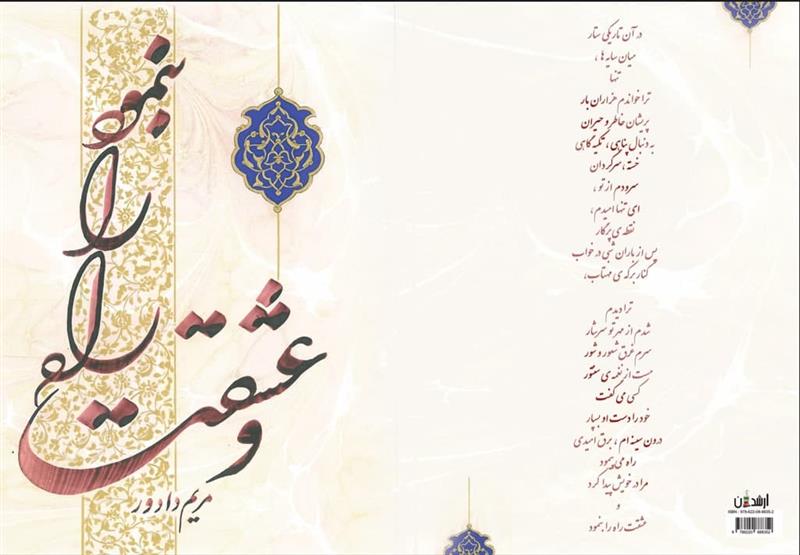 و عشقت
راه
را
بنمود
مریم دادور
در آن تاریکی ستار
میان سایه ها ،
تنها
ترا خواندم هزاران بار
پریشان خاطر و حیران
به دنبال پناهی ، تکیه گاهی
خسته ، سرگردان
سرودم از تو ،
ای تنها امیدم ،
نقطه ی پرگار
پس از باران شبی در خواب
کنار برکه ی مهتاب ،
ترا دیدم
شدم از مهر تو سرشار
سرم غرق شعور و شور
مست از نغمه ی سنتور
کسی می گفت
خود را دست او بسپار
درون سینه ام ، برق امیدی
راه می پیمود
مرا در خویش پیدا کرد
و
عشقت راه را بنمود
ارشدان
ISBN: